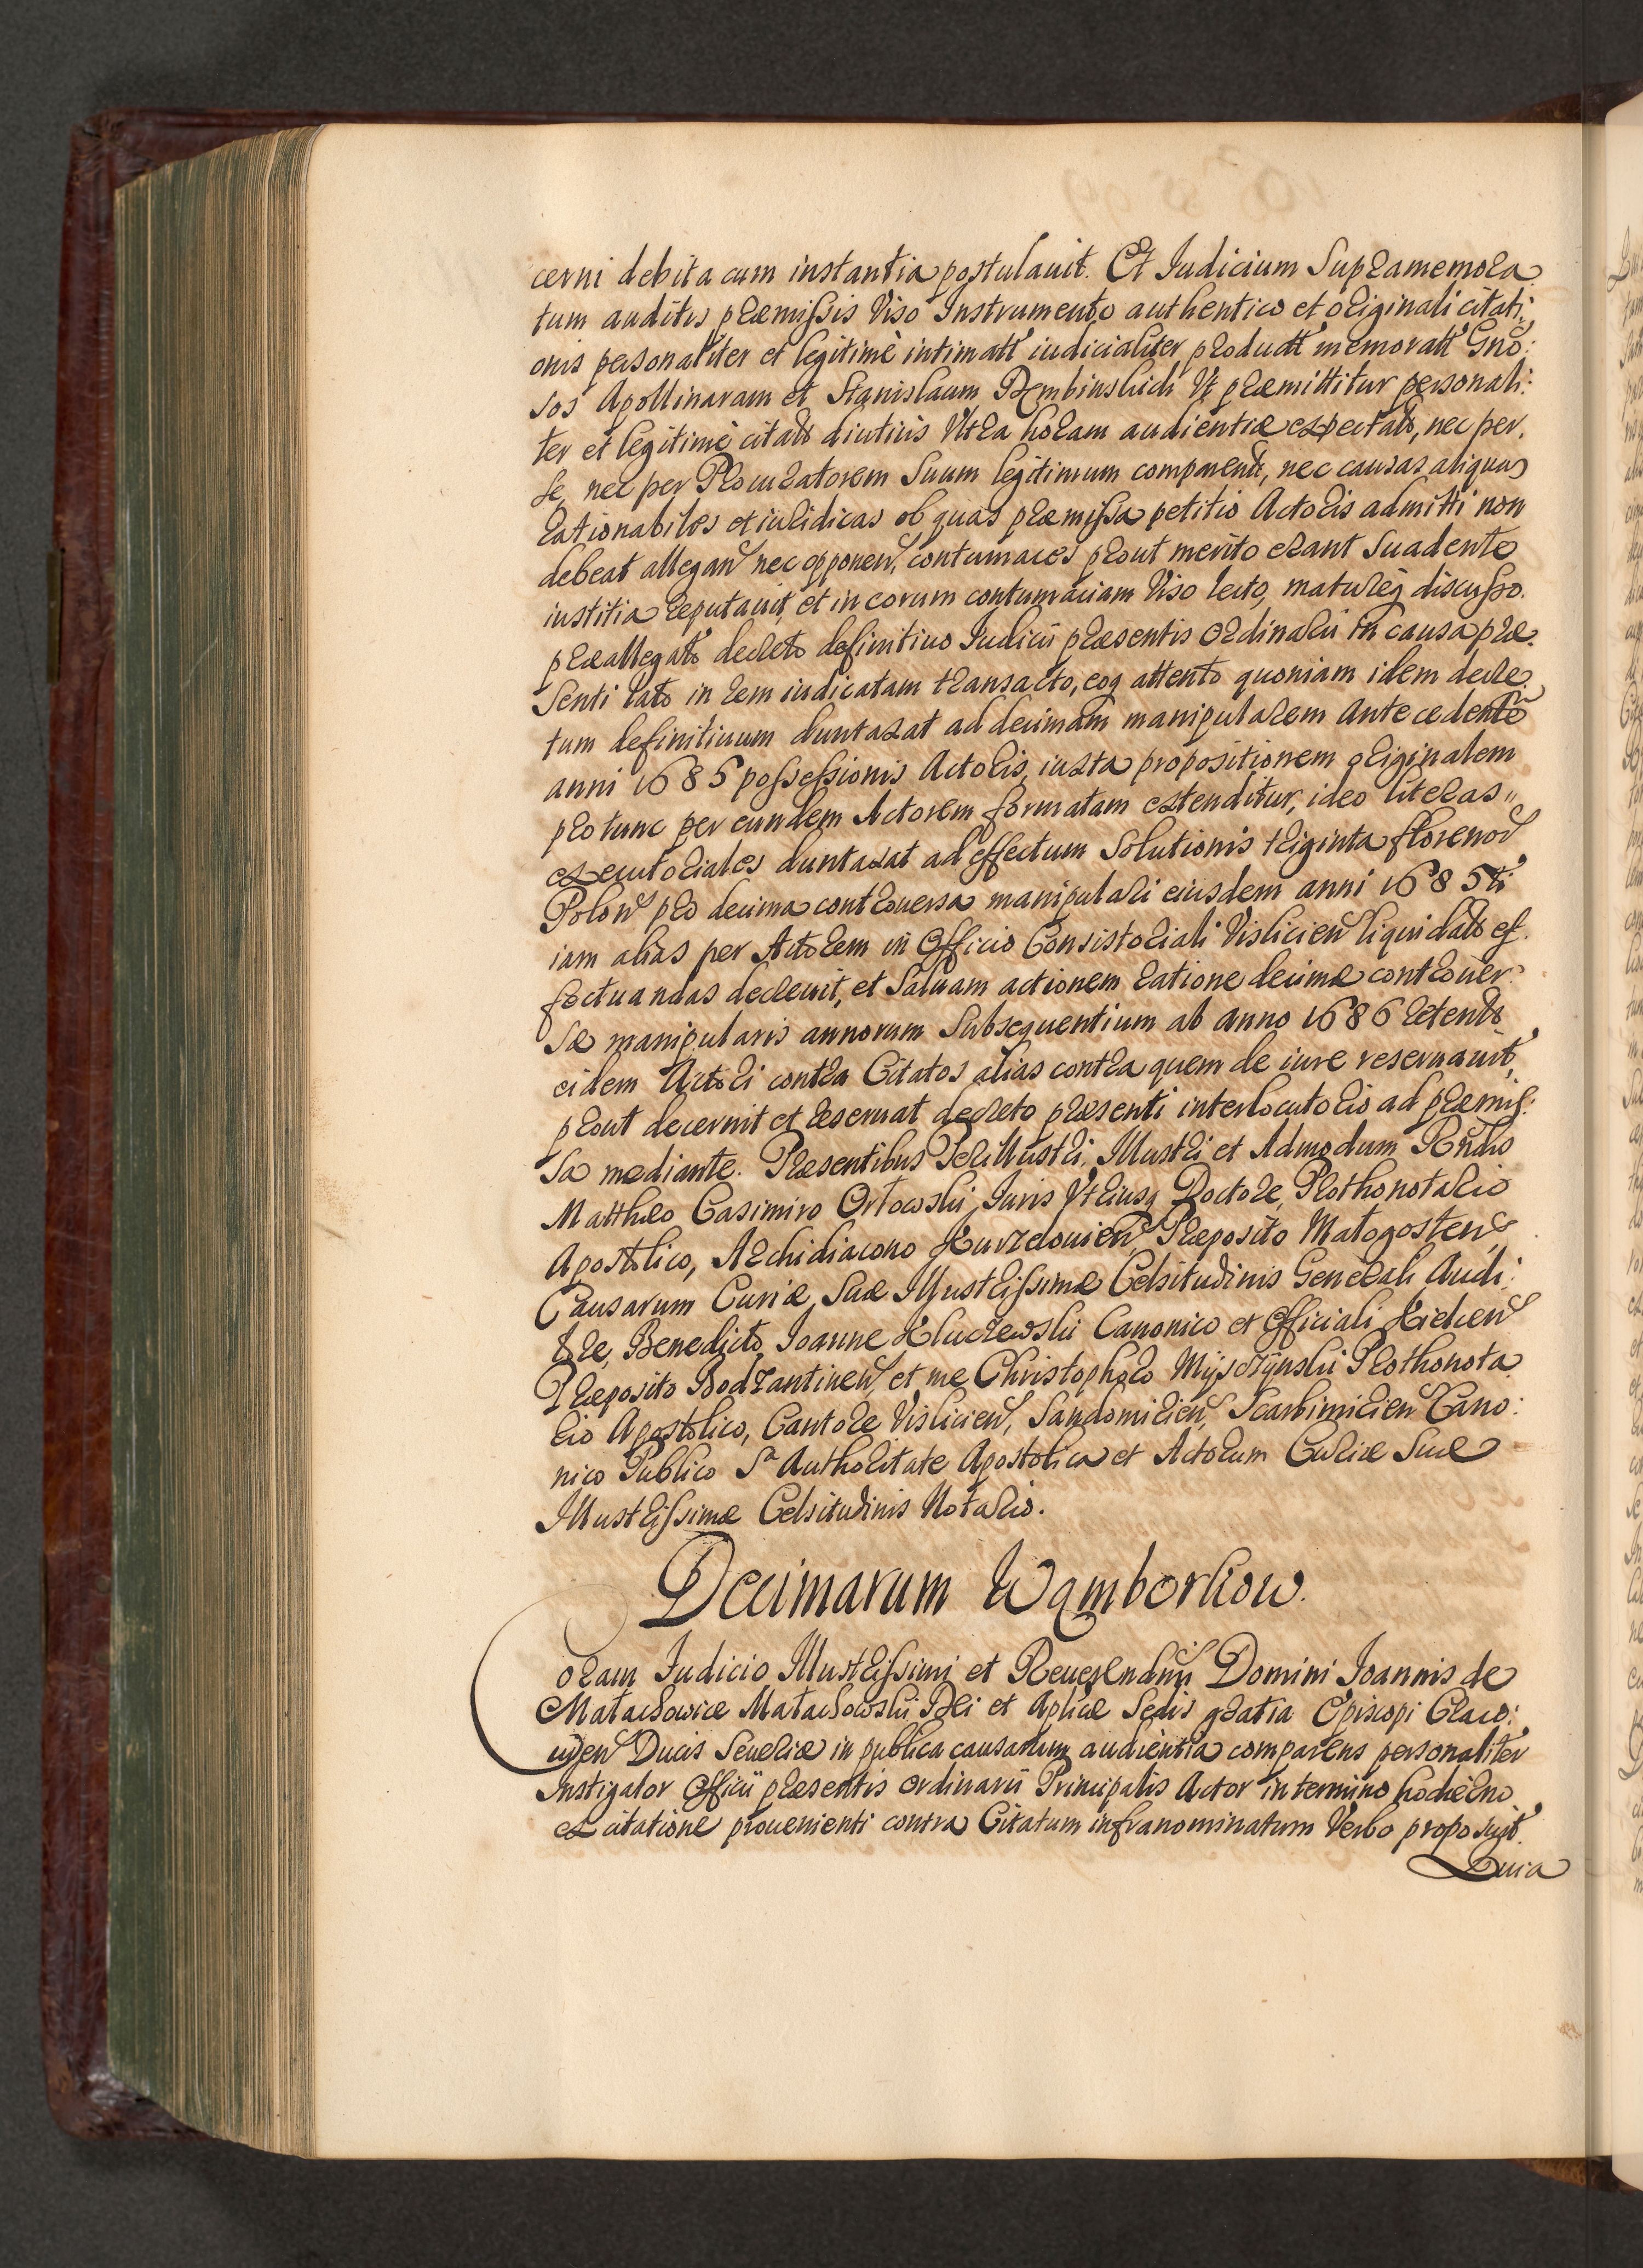 cerni debita cum instantia postulauit. Et Iudicium Supramemora
tum auditis præmissis Viso Instrumento authentico et originali citati:
onis personaliter et legitimè intimatt iudicialiter produtt memoratt Gnõ:
sos Apollinaram et Stanislaum Dembinskich Vt præmittitur personali:
ter et legitimè citato diutius Vltra horam audientiæ expectato, nec per
se, nec per Procuratorem Suum legitimum comparent, nec causas aliquas
rationabiles et iuridicas ob quas præmissa petitio Actoris admitti non
debeat allegan nec opponen, contumaces prout merito erant Suadente
iustitia reputauit, et in eorum contumaciam Viso lecto, matureq discusso
præallegato decreto definitiuo Iudicii præsentis Ordinarii in causa præ
senti lato in rem iudicatam transacto, eoq attento quoniam idem decre
tum definitiuum duntaxat ad decimam manipularem antecedentẽ
anni 1685 possessionis Actoris, iuxta propositionem originalem
pro tunc per eundem Actorem formatam extenditur, ideo literas
executoriales duntaxat ad effectum Solutionis triginta florenor
Polon pro decima controuersa manipulari eiusdem anni 1685ti
iam alias per Actorem in Officio Consistoriali Vislicien liquidato ef
fectuandas decreuit, et Saluam actionem ratione decimæ controuer
sæ manipularis annorum Subsequentium ab anno 1686 retento
eidem Actori contra Citatos alias contra quem de iure reseruauit,
prout decernit et reseruat decreto præsenti interlocutorio ad præmis:
sa mediante. Præsentibus Perillustri, Illustri et Admodum Rndis
Matthæo Casimiro Orłowski Iuris Vtriusq Doctore, Prothonotario
Apostolico, Archidiacono Kurzelouien Præposito Małogosten,
Causarum Curiæ Suæ Illustrissimæ Celsitudinis Generali Audi:
tore, Benedicto Ioanne Kluczewski Canonico et Officiali Kielcen
Præposito Bodzantinen, et me Christophoro Myszczynski Prothonota
rio Apostolico, Cantore Vislicien, Sandomirien, Scarbimirien Cano:
nico Publico Sa Authoritate Apostolica et Actorum Curiæ Suæ
Illustrissimæ Celsitudinis Notario.
Decimarum Wąmborkow.
Coram Iudicio Illustrissimi et Reuerendmi Domini Ioannis de
Małachowice Małachowski Dei et Aplicæ Sedis gratia Episcopi Craco:
uien Ducis Seueriæ in publica causarum audientia comparens personaliter
Instigator Officii præsentis ordinarii Principalis Actor in termino hodierno
ex citatione prouenienti contra Citatum infranominatum Verbo proposuit.
Quia